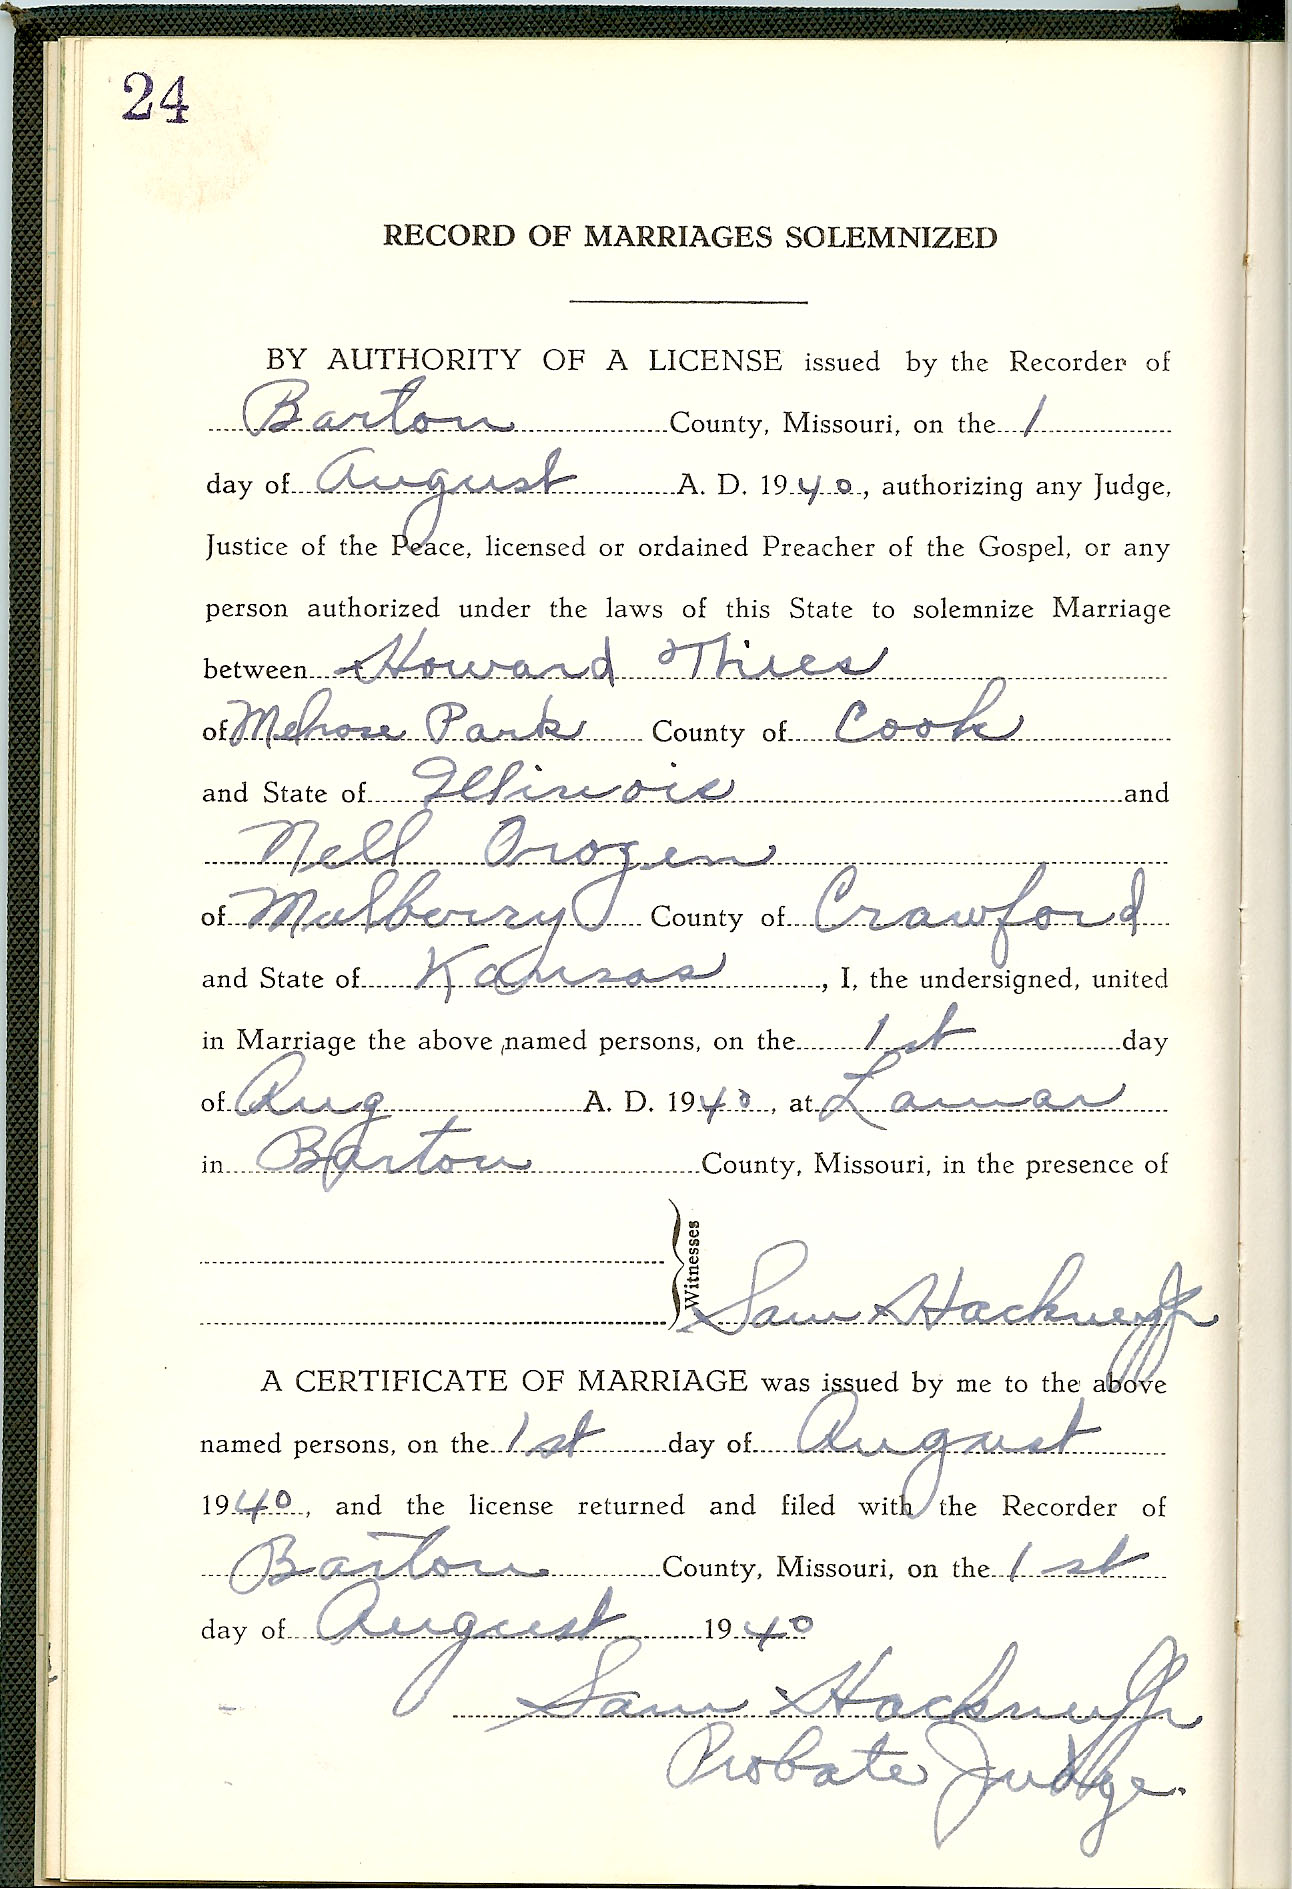 24
RECORD OF MARRIAGES SOLEMNIZED
BY AUTHORITY OF A LICENSE issued by the Recorder of
Barton County, Missouri, on the 1
day of August A. D. 1940, authorizing any Judge,
Justice of the Peace, licensed or ordained Preacher of the Gospel, or any
person authorized under the laws of this State to solemnize Marriage
between Howard Thies
of Melrose Park County of Cook
and State of Illinois and
Nell Brogen
of Mulberry County of Crawford
and State of Kansas, I, the undersigned, united
in Marriage the above named persons, on the 1st day
of Aug A. D. 1940, at Lamar
in Barton County, Missouri, in the presence of
Witnesses
Sam Hackney Jr
A CERTIFICATE OF MARRIAGE was issued by me to the above
named persons, on the 1st day of August
1940, and the license returned and filed with the Recorder of
Barton County, Missouri, on the 1st
day of August 1940
Sam Hackney Jr
Probate Judge.